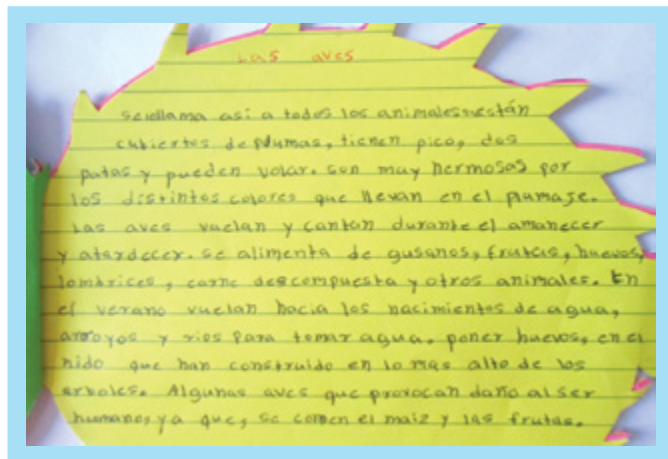 Las aves
se llama así a todos los animales están
cubiertos de plumas, tienen pico, dos
patas y pueden volar. son muy hermosas por
los distintos colores que llevan en el plumaje.
Las aves vuelan y cantan durante el amanecer
y atardecer. se alimenta de gusanos, frutas, huevos,
lombrices, carne descompuesta y otros animales. En
el verano vuelan hacia los nacimientos de agua,
arroyos y rios para tomar agua. poner huevos, en el
nido que han construido en lo mas alto de los
arboles. Algunas aves que provocan daño al ser
humano, ya que, se comen el maiz y las frutas.